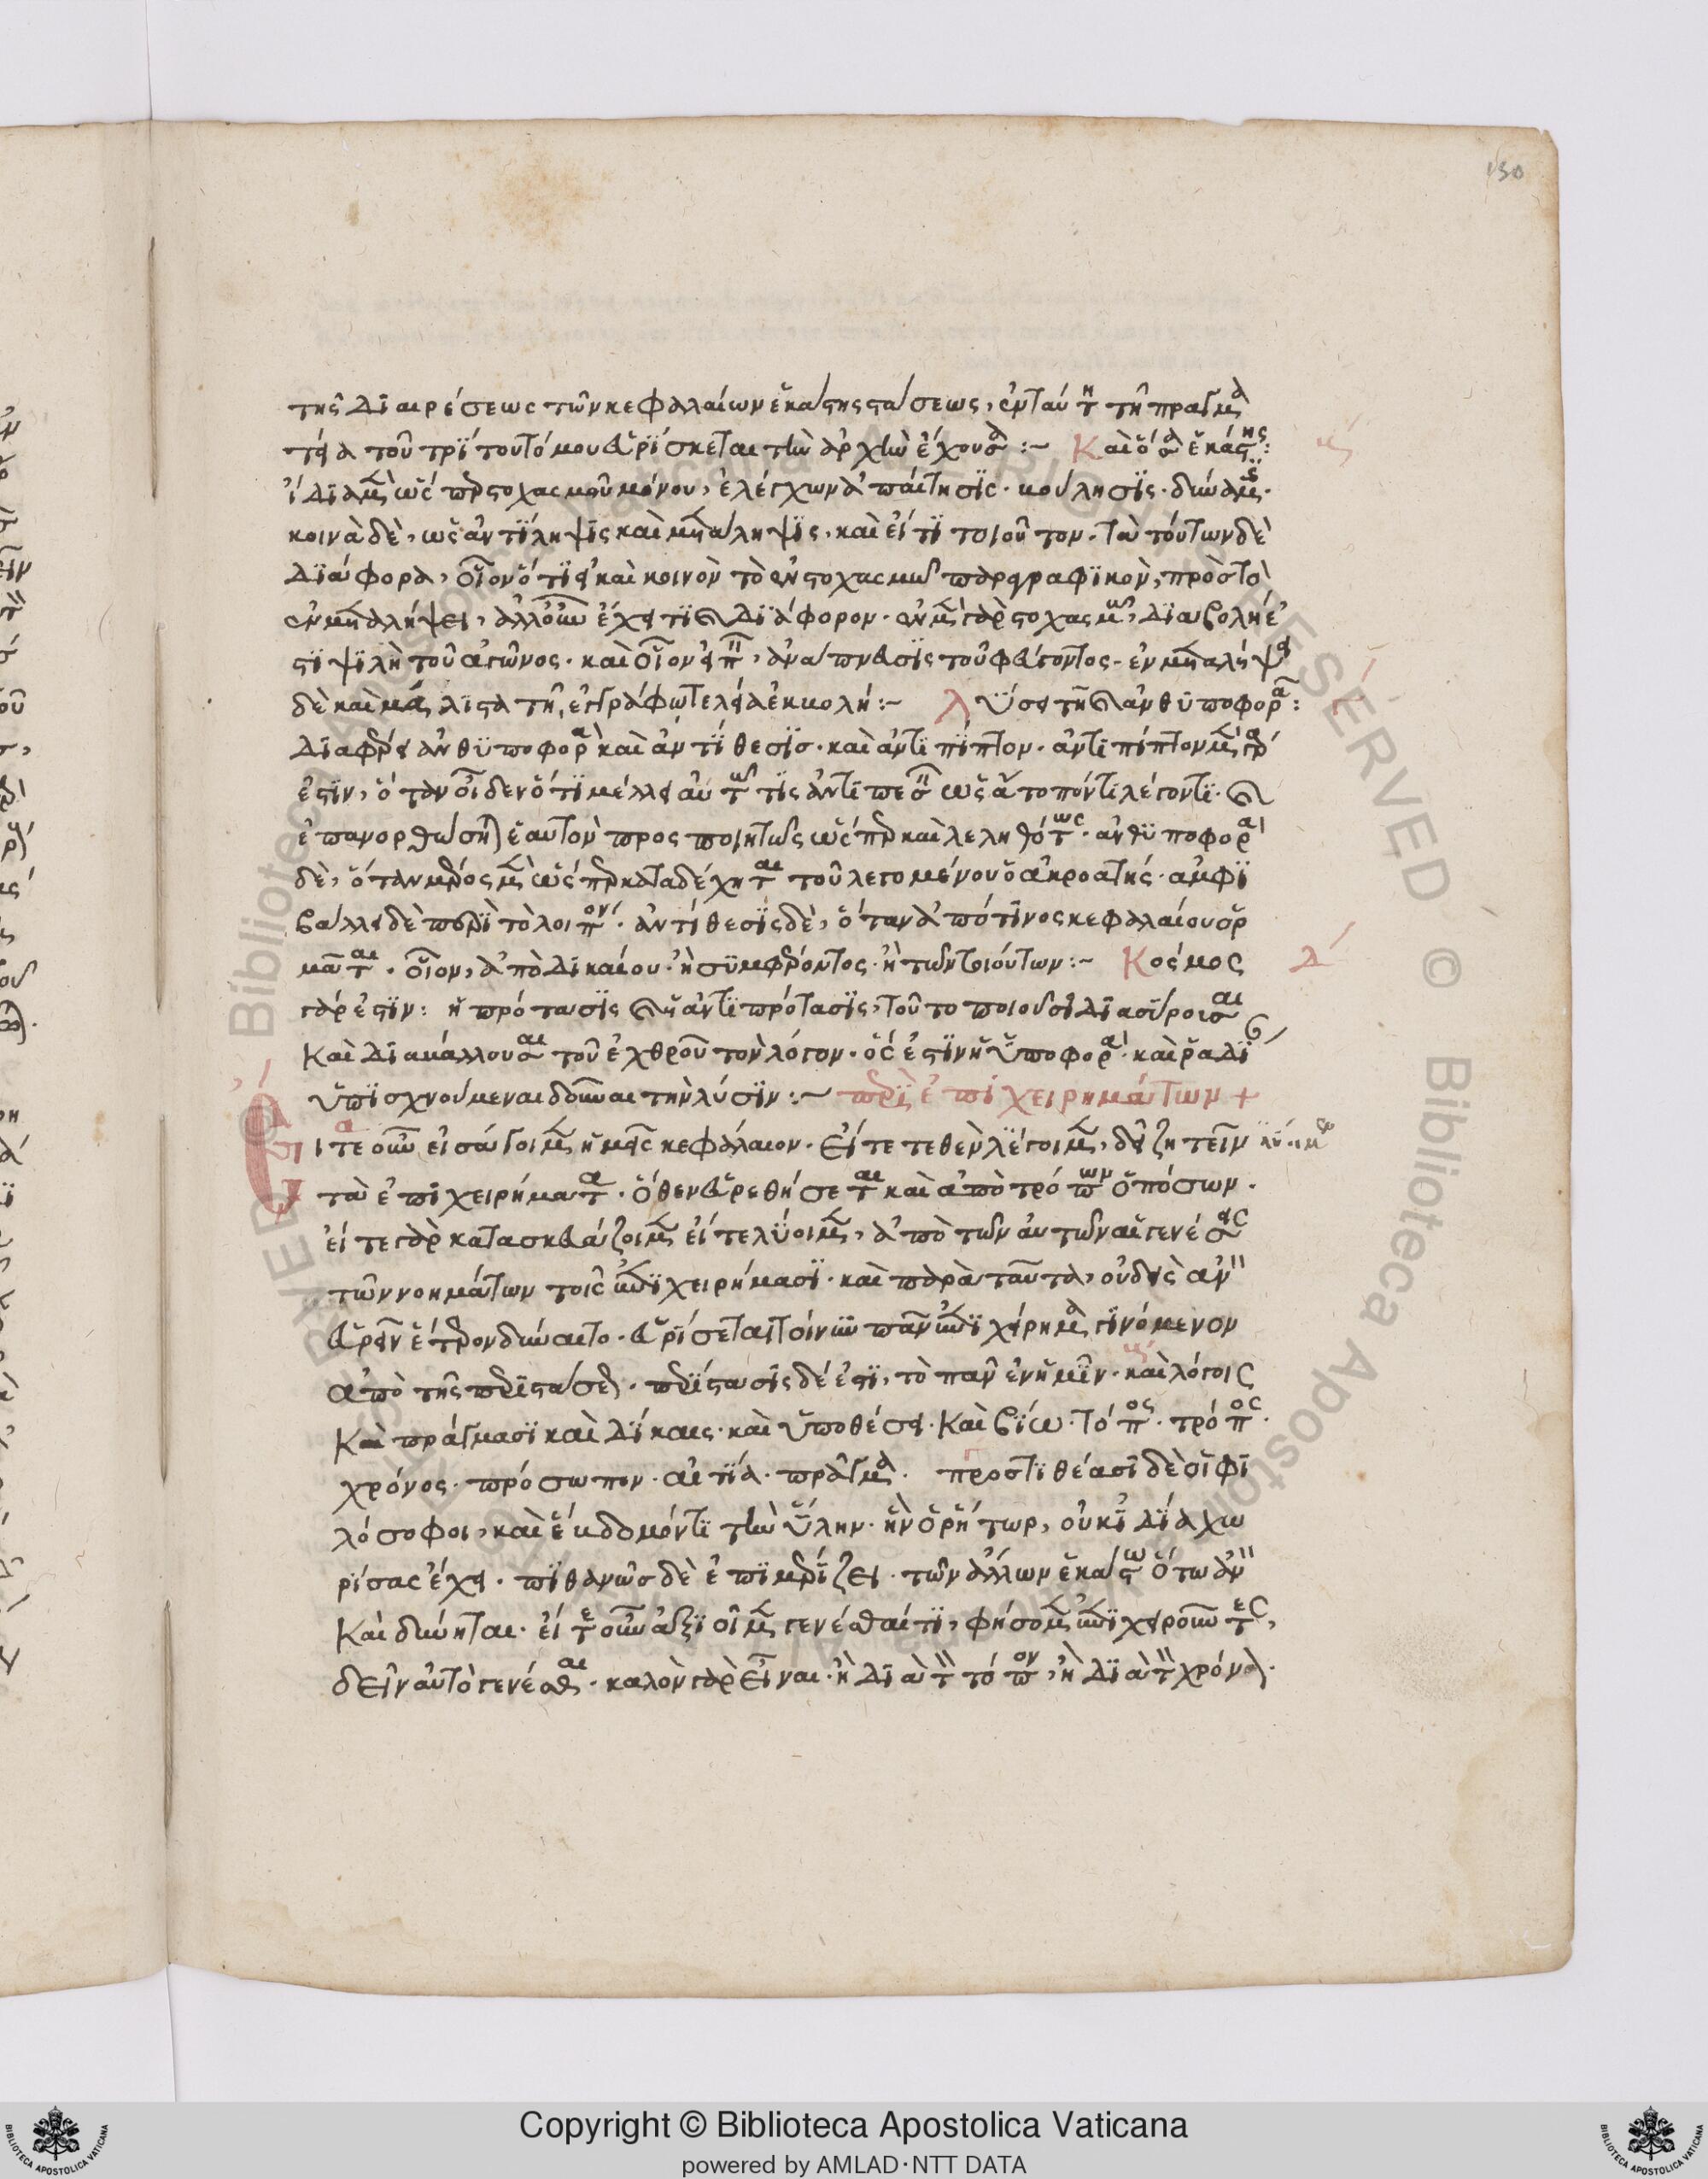 130
τῆς διαιρέσεως τῶν κεφαλαίων ἑκάστης στάσεως, ἐνταύτη τῆ πραγμα
τεία τοῦ τρίτου τόμου εὑρίσκεται τὴν ἀρχὴν ἔχουσα :~ Καὶ ὅσα ἑκάστης :
ἴδια μὲν ὡς ἐπὶ στοχασμοῦ μόνου, ἐλέγχων ἀπαίτησις. βούλησις. δύναμις.
κοινὰ δὲ, ὡς ἀντίληψις καὶ μετάληψις, καὶ εἴ τι τοιοῦτον. τὰ τούτων δὲ
διάφορα, οἷον ὅτι εἰ καὶ κοινὸν τὸ ἐν στοχασμῶ παραγραφικὸν, πρὸς τὸ
ἐν μεταλήψει, ἀλλ' οὖν ἔχει τι καὶ διάφορον. ἐν μὲν γὰρ στοχασμῶ, διαβολὴ ἐ
στι ψιλὴ τοῦ ἀγῶνος. καὶ οἷον εἰπεῖν, ἀνάπνευσις τοῦ φεύγοντος. ἐν μεταλήψει
δὲ καὶ μάλιστα τῆ ἐγγράφω τελεία ἐκβολή :~ λύσει τὴν καὶ ἀνθυποφοράν :
διαφέρει ἀνθυποφορὰ καὶ ἀντίθεσις. καὶ ἀντιπίπτον. ἀντιπίπτον μὲν γάρ
ἐστιν, ὅταν οἶδεν ὅτι μέλλει αὐτῶ τις ἀντιπεσεῖν ὡς ἄτοπόν τι λέγοντι. καὶ
ἐπανορθώσηται ἑαυτὸν προσποιητῶς ὥσπερ καὶ λεληθότως. ἀνθυποφορά
δὲ, ὅταν μέρος μὲν ὥσπερ καταδέχηται τοῦ λεγομένου ὁ ἀκροατής. ἀμφι
βάλλει δὲ περὶ τὸ λοιπόν. ἀντίθεσις δὲ, ὅταν ἀπό τινος κεφαλαίου ὁρ
μᾶται. οἷον, ἀπὸ δικαίου. ἢ συμφέροντος. ἢ τῶν τοιούτων :~ Κόσμος
γάρ ἐστιν : ἡ πρότασις καὶ ἡ ἀντιπρότασις, τοῦτο ποιοῦσι διασύρουσαι
Καὶ διαβάλλουσαι τοῦ ἐχθροῦ τὸν λόγον. ὅς ἐστιν ἡ ὑποφορά. καὶ ῥαδί
ὑπισχνούμεναι δοῦναι τὴν λύσιν :~ περὶ ἐπιχειρημάτων +
Εἴτε οὖν εἰσάγοιμεν ἡμεῖς κεφάλαιον. Εἴτε τεθὲν λέγοιμεν, δεῖ ζητεῖν
τὰ ἐπιχειρήματα. ὅθεν εὑρεθήσεται καὶ ἀπὸ τρόπων ὁπόσων.
εἴτε γὰρ κατασκευάζοιμεν εἴτε λύοιμεν, ἀπὸ τῶν αὐτῶν αἱ γενέσεις
τῶν νοημάτων τοῖς ἐπιχειρήμασι. καὶ παρὰ ταῦτα, οὐδεὶς ἂν
εὑρεῖν ἕτερον δύναιτο. εὑρίσεται τοίνυν πᾶν ἐπιχείρημα γινόμενον
ἀπὸ τῆς περιστάσεως. περίστασις δέ ἐστι, τὸ πᾶν ἐν ἡμῖν. καὶ λόγοις
Καὶ πράγμασι καὶ δίκαις. καὶ ὑποθέσει. Καὶ βίω. τόπος. τρόπος.
χρόνος. πρόσωπον. αἰτία. πρᾶγμα. προστιθέασι δὲ οἱ φι
λόσοφοι, καὶ ἕβδομόν τι τὴν ὕλην. ἣν ὁ ῥήτωρ, οὐκ ἰδία χω
ρίσας ἔχει. πιθανῶς δὲ ἐπιμερίζει. τῶν ἄλλων ἑκάστω ὅτω ἂν
Καὶ δύνηται. εἴτε οὖν ἀξιοῖμεν γενέσθαι τι, φήσομεν ἐπιχειροῦντες,
δεῖν αὐτὸ γενέσθαι. καλὸν γὰρ εἶναι. ἢ διὰ τὸν τόπον, ἢ διὰ τὸν χρόνον.
Copyright © Biblioteca Apostolica Vaticana
powered by AMLAD·NTT DATA